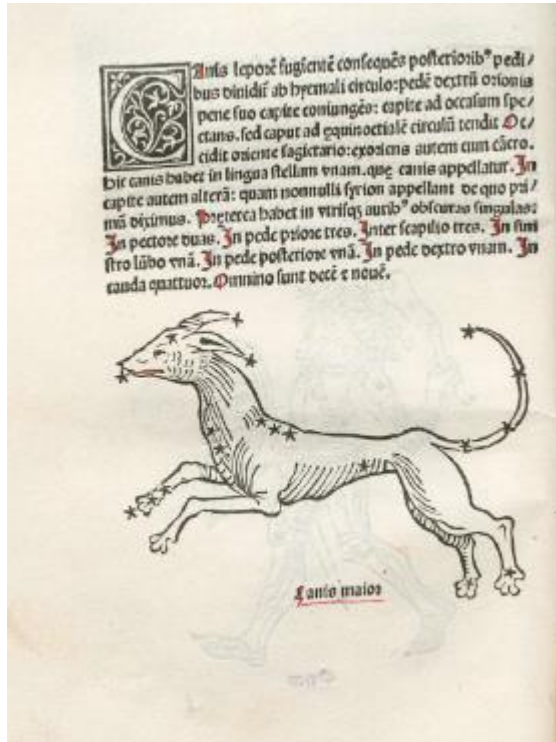 CAnis leporē fugientē consequēs posteriorib⁹ pedi/
bus diuidit̄ ab hyemali circulo: pedē dextrū orionis
pene suo capite coniungēs: capite ad occasum spe/
ctans. sed caput ad equinoctialē circulū tendit Oc/
cidit oriente sagittario: exoriens autem cum cācro.
hic canis habet in lingua stellam vnam. que canis appellatur. In
capite autem alterā: quam nonnulli syrion appellant de quo pri/
mū diximus. Preterea habet in vtrisqꝫ aurib⁹ obscuras singulas:
In pectore duas. In pede priore tres. Inter scapilio tres. In sini
stro lūbo vnā. In pede posteriore vnā. In pede dextro vnam. In
cauda quattuor. Omnino sunt decē ⁊ nouē.
Canis maior